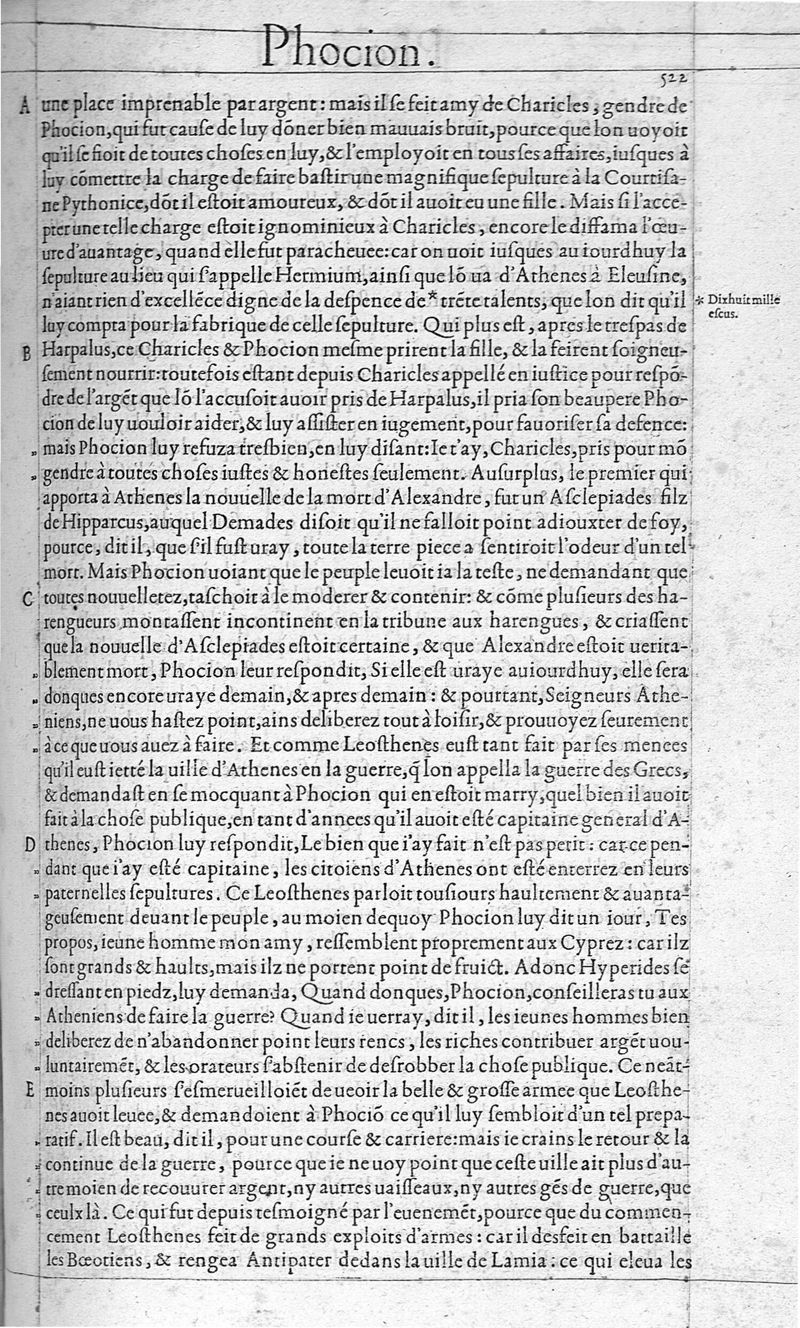 Phocion.
522
A une place imprenable par argent: mais il ſe feit amy de Charicles, gendre de
Phocion, qui fut cauſe de luy dõner bien mauuais bruit, pource que lon uoyoit
qu'il ſe fioit de toutes choſes en luy, & l'employoit en tous ſes affaires, iuſques à
luy cõmettre la charge de faire baſtir une magnifique ſepulture à la Courtiſa-
ne Pythonice, dõt il eſtoit amoureux, & dõt il auoit eu une fille. Mais ſi l'acce-
pter une telle charge eſtoit ignominieux à Charicles, encore le diffama l'œu-
ure d'auantage, quand elle fut paracheuee: car on uoit iuſques au iourdhuy la
ſepulture au lieu qui ſ'appelle Hermium, ainſi que lõ ua d'Athenes à Eleuſine,
n'aiant rien d'excellẽce digne de la deſpence de* trẽte talents, que lon dit qu'il
* Dixhuit mille
eſcus.
luy compta pour la fabrique de celle ſepulture. Qui plus eſt, apres le treſpas de
B Harpalus, ce Charicles & Phocion meſme prirent la fille, & la feirent ſoigneu-
ſement nourrir: toutefois eſtant depuis Charicles appellé en iuſtice pour reſpõ-
dre de l'argẽt que lõ l'accuſoit auoir pris de Harpalus, il pria ſon beaupere Pho-
cion de luy uouloir aider, & luy aſſiſter en iugement, pour fauoriſer ſa defence:
„ mais Phocion luy refuza treſbien, en luy diſant: Ie t'ay, Charicles, pris pour mõ
„ gendre à toutes choſes iuſtes & honeſtes ſeulement. Au ſurplus, le premier qui
apporta à Athenes la nouuelle de la mort d'Alexandre, fut un Aſclepiades filz
de Hipparcus, auquel Demades diſoit qu'il ne falloit point adiouxter de foy,
pource, dit il, que ſ'il fuſt uray, toute la terre piece a ſentiroit l'odeur d'un tel
mort. Mais Phocion uoiant que le peuple leuoit ia la teſte, ne demandant que
C toutes nouuelletez, taſchoit à le moderer & contenir: & cõme pluſieurs des ha-
rengueurs montaſſent incontinent en la tribune aux harengues, & criaſſent
que la nouuelle d'Aſclepiades eſtoit certaine, & que Alexandre eſtoit uerita-
„ blement mort, Phocion leur reſpondit, Si elle eſt uraye auiourdhuy, elle ſera
„ donques encore uraye demain, & apres demain: & pourtant, Seigneurs Athe-
„ niens, ne uous haſtez point, ains deliberez tout à loiſir, & prouuoyez ſeurement
„ à ce que uous auez à faire. Et comme Leoſthenes euſt tant fait par ſes menees
qu'il euſt ietté la uille d'Athenes en la guerre, q̃ lon appella la guerre des Grecs,
& demandaſt en ſe mocquant à Phocion qui en eſtoit marry, quel bien il auoit
fait à la choſe publique, en tant d'annees qu'il auoit eſté capitaine general d'A-
D thenes, Phocion luy reſpondit, Le bien que i'ay fait n'eſt pas petit: car ce pen-
„ dant que i'ay eſté capitaine, les citoiens d'Athenes ont eſté enterrez en leurs
„ paternelles ſepultures. Ce Leoſthenes parloit touſiours haultement & auanta-
geuſement deuant le peuple, au moien dequoy Phocion luy dit un iour, Tes
propos, ieune homme mon amy, reſſemblent proprement aux Cyprez: car ilz
ſont grands & haults, mais ilz ne portent point de fruict. Adonc Hyperides ſe
„ dreſſant en piedz, luy demanda, Quand donques, Phocion, conſeilleras tu aux
„ Atheniens de faire la guerre? Quand ie uerray, dit il, les ieunes hommes bien
„ deliberez de n'abandonner point leurs rencs, les riches contribuer argẽt uou-
„ luntairemẽt, & les orateurs ſ'abſtenir de deſrobber la choſe publique. Ce neãt-
E moins pluſieurs ſ'eſmerueilloiẽt de ueoir la belle & groſſe armee que Leoſthe-
nes auoit leuee, & demandoient à Phociõ ce qu'il luy ſembloit d'un tel prepa-
„ ratif. Il eſt beau, dit il, pour une courſe & carriere: mais ie crains le retour & la
„ continue de la guerre, pource que ie ne uoy point que ceſte uille ait plus d'au-
„ tre moien de recouurer argent, ny autres uaiſſeaux, ny autres gẽs de guerre, que
„ ceulx là. Ce qui fut depuis teſmoigné par l'euenemẽt, pource que du commen-
cement Leoſthenes feit de grands exploits d'armes: car il desfeit en battaille
les Bœotiens, & rengea Antipater dedans la uille de Lamia: ce qui eleua les